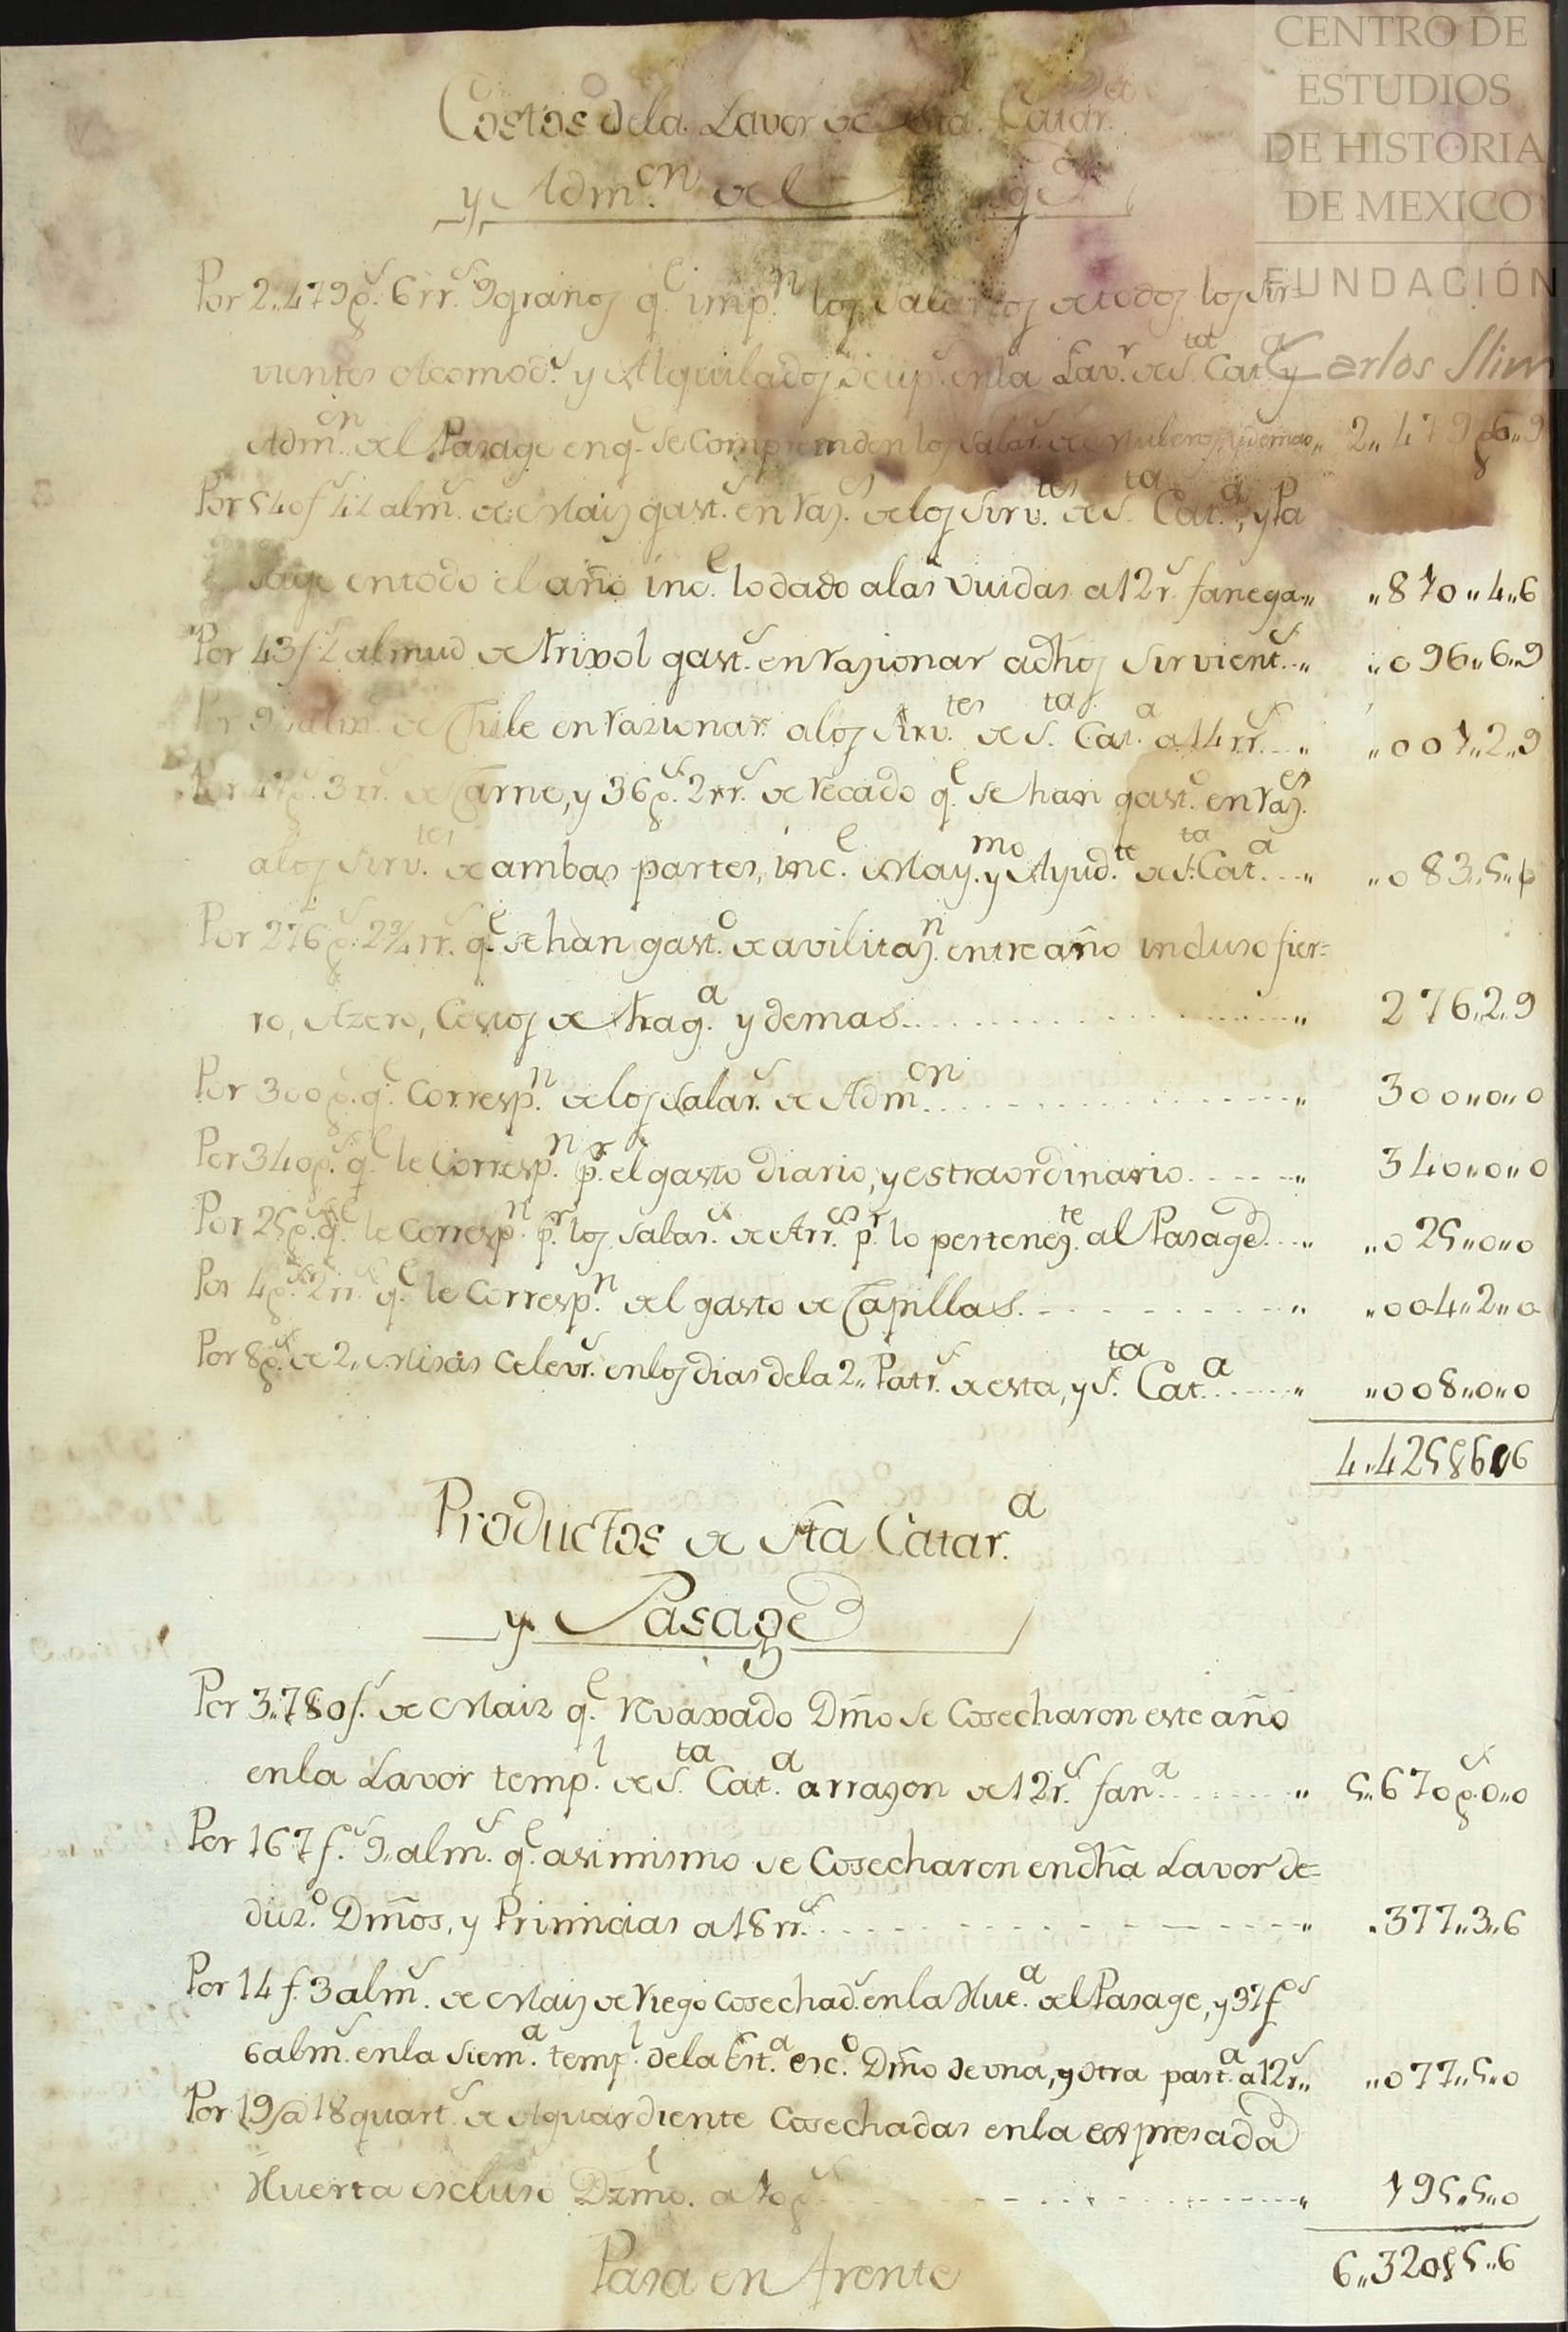 CENTRO DE
ESTUDIOS
DE HISTORIA
DE MEXICO
FUNDACIÓN
Carlos Slim
Costos dela Lavor de Sta. Catar.a
y Adm.on del
Por 2,,479p.s 6rr.s 9granos q.e imp.n los Salarios de todos los Sir=
vientes Acomod.s y Alquilados ocup.s enla Lav.r de S.ta Cat.a y
Adm.on del Pasage enq.e se Comprenden los Salar.s de Muleros, y demas,, 2,,479p6,,9
Por 540f.s 4½ alm.s de Maiz gast.s en raz.es delos Sirv.tes de S.ta Cat.a, y Pa
sage entodo el año inc.e lo dado alas Viudas a12r.s fanega,, ,,870,,4,,6
Por 43f.s ½ almud de Frixol gast.s en razionar adhos Sirvient.s ,, ,,096,,6,,9
alm.s de Chile en razionar alos Sirv.tes de S.ta Cat.a a14rr.s ,, ,,007,,2,,9
Por 47p.s 3rr.s de Carne, y 36p.s 2rr.s de recado q.e se han gast.o en raz.es
alos Sirv.tes de ambas partes, inc.e May.mo y Ayud.te de S.ta Cat.a ,, ,,083,,5,,0
Por 276p.s 2¾rr.s q.e se han gast.o de avilitaz.n entre año incluso fier=
ro, Azero, Costos de Frag.a y demas ,, 276,,2,,9
Por 300p.s q.e Corresp.n delos Salar.s de Adm.on ,, 300,,0,,0
Por 340p.s q.e le Corresp.n p.r el gasto diario, y estraordinario ,, 340,,0,,0
Por 25p.s q.e le Corresp.n p.r los Salar.s de Arr.os p.r lo pertenez.te al Pasage ,, ,,025,,0,,0
Por 4p.s 2rr.s q.e le Corresp.n del gasto de Capillas ,, ,,004,,2,,0
Por 8p.s de 2,, Misas Celevr.s enlos dias dela 2,, Patr.s de esta, y S.ta Cat.a ,, ,,008,,0,,0
4,,425p6,,6
Productos de Sta Catar.a
y Pasage
Por 3,,780f.s de Maiz q.e revaxado Dmo se Cosecharon este año
enla Lavor temp.l de S.ta Cat.a a razon de12r.s fan.a ,, 5,,670p.s0,,0
Por 167f.s 9,,alm.s q.e asimismo se Cosecharon endha Lavor de=
duz.o Dmos, y Primicias a18rr.s ,, ,377,,3,,6
Por 14f.s 3alm.s de Maiz de Riego cosechad.s enla Hue.a del Pasage, y 37f.os
6alm.s enla Siem.a temp.l dela Est.a esc.o Dmo de una, y otra part.a a12r.s,, ,,077,,5,,0
Por 19@ 18quart.s de Aguardiente Cosechadas enla expresada
Huerta escluso Dzmo. a 10p.s ,, 195,,5,,0
6,,320p5,,6
Pasa en frente